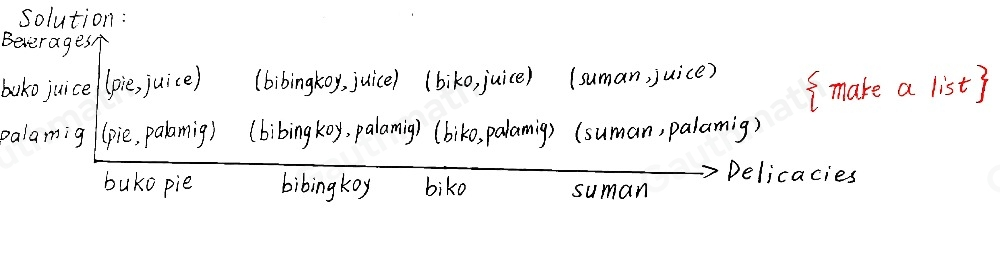 Solution:
Beverages
buko juice (pie, juice) (bibingkoy, juice) (biko, juice) (suman, juice) {make a list}
palamig (pie, palamig) (bibingkoy, palamig) (biko, palamig) (suman, palamig)
buko pie bibingkoy biko suman Delicacies